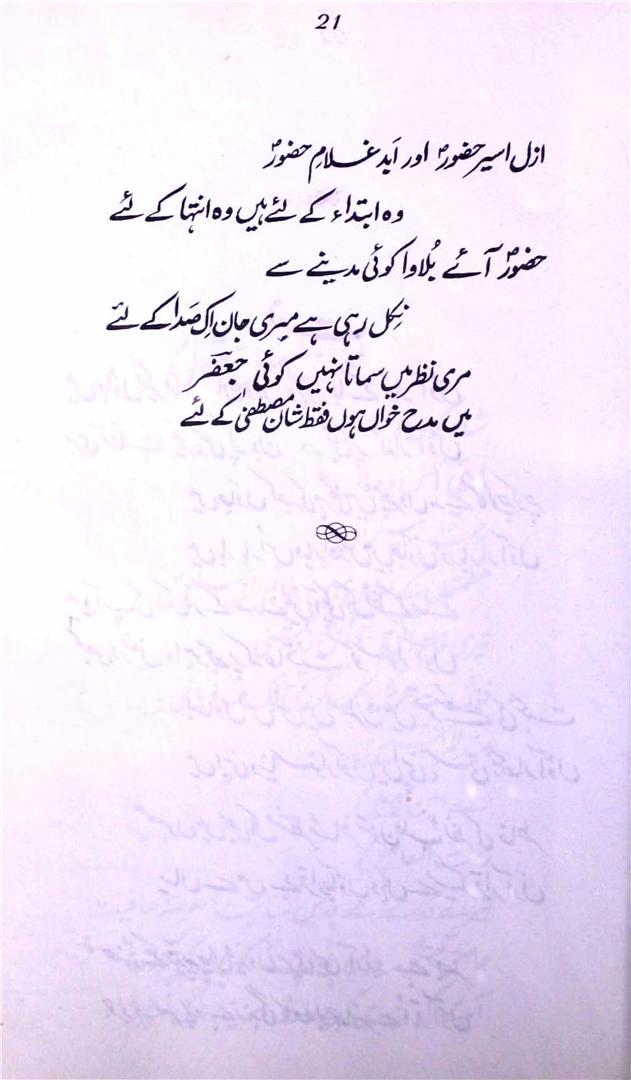 21
ازل اسیرِ حضورؐ اور ابد غلامِ حضورؐ
وہ ابتداء کے لئے ہیں وہ انتہا کے لئے
حضورؐ آئے بُلاوا کوئی مدینے سے
نِکل رہی ہے میری جان اِک صَدا کے لئے
مری نظر میں سماتا نہیں کوئی جعفؔر
میں مدح خواں ہوں فقط شانِ مصطفیٰؐ کے لئے